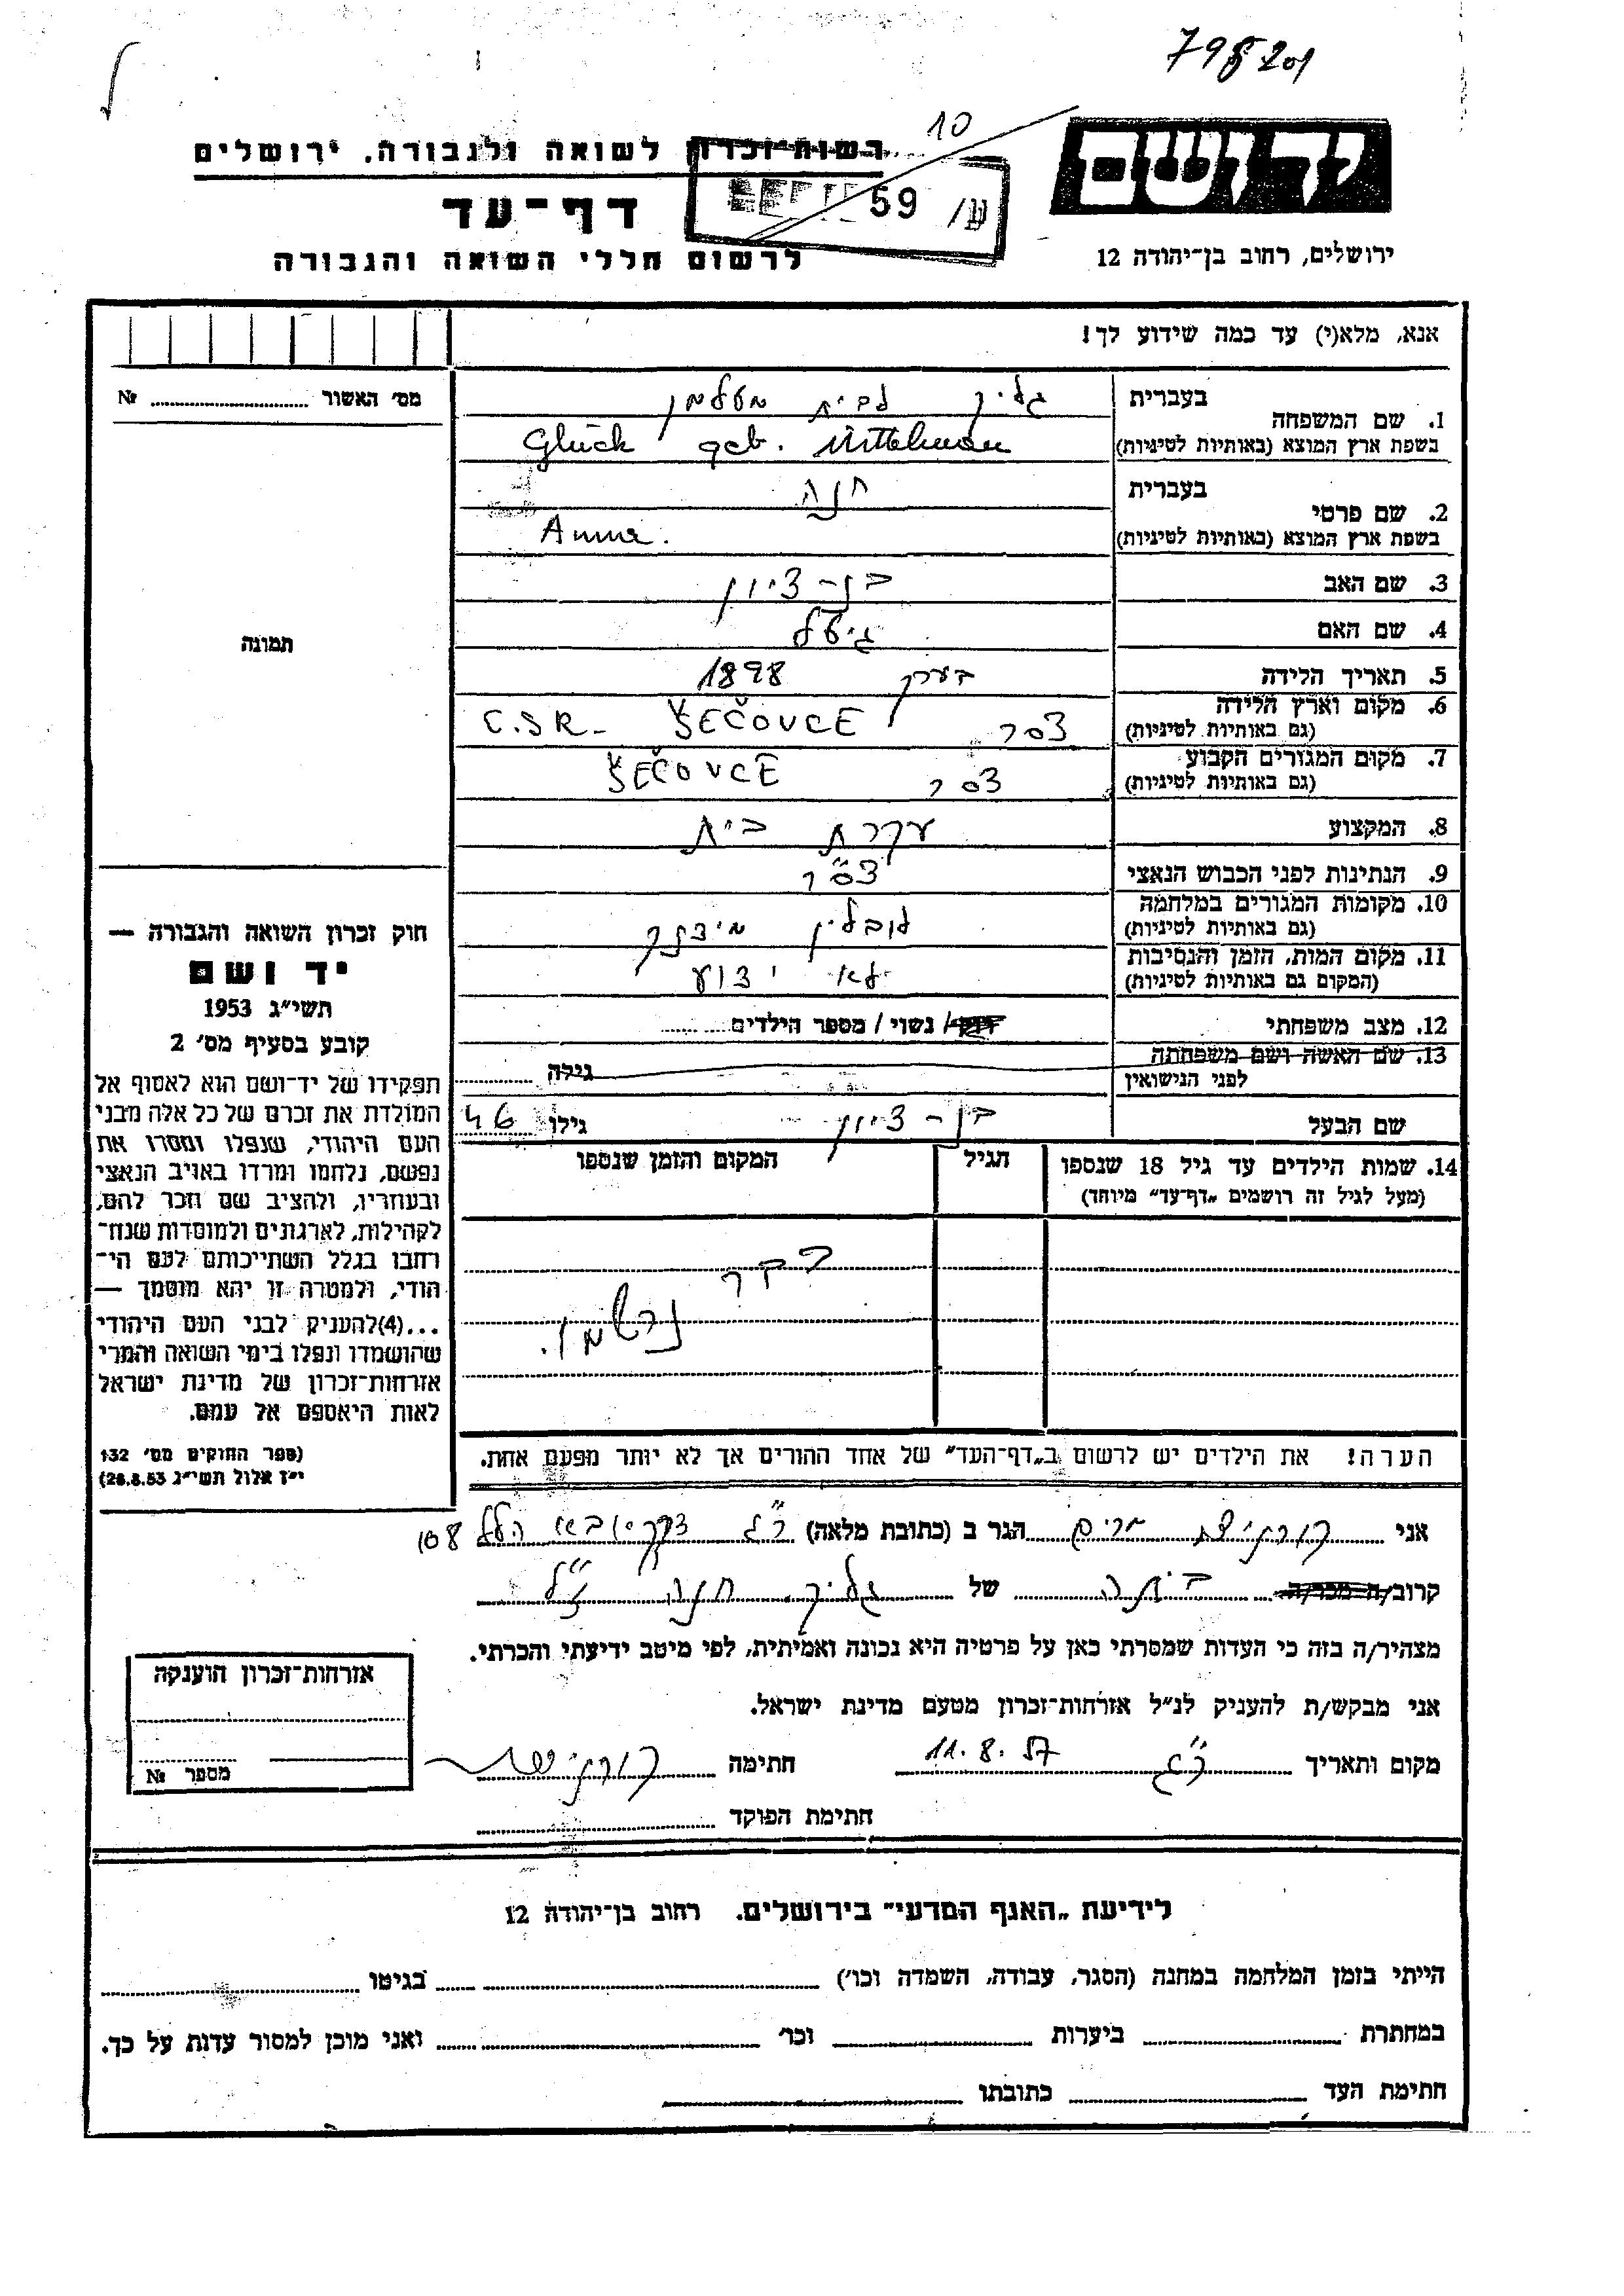 798201
10
רשות-זכרון לשואה ולגבורה. ירושלים
יד ושם
דף-עד
59 ע/
לרשום חללי השואה והגבורה
ירושלים, רחוב בן-יהודה 12
אנא, מלא(י) עד כמה שידוע לך!
מס' האשור № 
1. שם המשפחה
בעברית גליק לבית מטלמן
בשפת ארץ המוצא (באותיות לטיניות) Glück geb. Mittelman
2. שם פרטי
בעברית חנה
בשפת ארץ המוצא (באותיות לטיניות) Anna.
3. שם האב בן-ציון
4. שם האם גיטל
5. תאריך הלידה בערך 1898
6. מקום וארץ הלידה
(גם באותיות לטיניות) צסר ŠEČOVCE C.S.R-
7. מקום המגורים הקבוע
(גם באותיות לטיניות) צסר ŠEČOVCE
8. המקצוע עקרת בית
9. הנתינות לפני הכבוש הנאצי צס"ר
10. מקומות המגורים במלחמה
(גם באותיות לטיניות) לובלין מידנק
11. מקום המות, הזמן והנסיבות
(המקום גם באותיות לטיניות) לא ידוע
12. מצב משפחתי / נשוי / מספר הילדים
13. שם האשה ושם משפחתה
לפני הנישואין גילה
שם הבעל בן-ציון גילו 46
14. שמות הילדים עד גיל 18 שנספו
(מעל לגיל זה רושמים "דף-עד" מיוחד)
הגיל
המקום והזמן שנספו
כבר
נרשמו.
הערה! את הילדים יש לרשום ב"דף-העד" של אחד ההורים אך לא יותר מפעם אחת.
תמונה
חוק זכרון השואה והגבורה —
יד ושם
תשי"ג 1953
קובע בסעיף מס' 2
תפקידו של יד-ושם הוא לאסוף אל
המולדת את זכרם של כל אלה מבני
העם היהודי, שנפלו ומסרו את
נפשם, נלחמו ומרדו באויב הנאצי
ובעוזריו, ולהציב שם וזכר להם,
לקהילות, לארגונים ולמוסדות שנח-
רחבו בגלל השתייכותם לעם הי-
הודי, ולמטרה זו יהא מוסמך —
...(4) להעניק לבני העם היהודי
שהושמדו ונפלו בימי השואה והמרי
אזרחות-זכרון של מדינת ישראל
לאות היאספם אל עמם.
(ספר החוקים מס' 132
י"ז אלול תשי"ג 28.8.53)
אני מרים הגר ב (כתובת מלאה) ר"ג הלל 108
קרוב/ה בתה של גליק חנה ז"ל
מצהיר/ה בזה כי העדות שמסרתי כאן על פרטיה היא נכונה ואמיתית, לפי מיטב ידיעתי והכרתי.
אני מבקש/ת להעניק לנ"ל אזרחות-זכרון מטעם מדינת ישראל.
מקום ותאריך ר"ג 11.8.57 חתימה
חתימת הפוקד
אזרחות-זכרון הוענקה
מספר №
לידיעת "האגף המדעי" בירושלים. רחוב בן-יהודה 12
הייתי בזמן המלחמה במחנה (הסגר, עבודה, השמדה וכו') בגיטו
במחתרת ביערות וכו' ואני מוכן למסור עדות על כך.
חתימת העד כתובתו